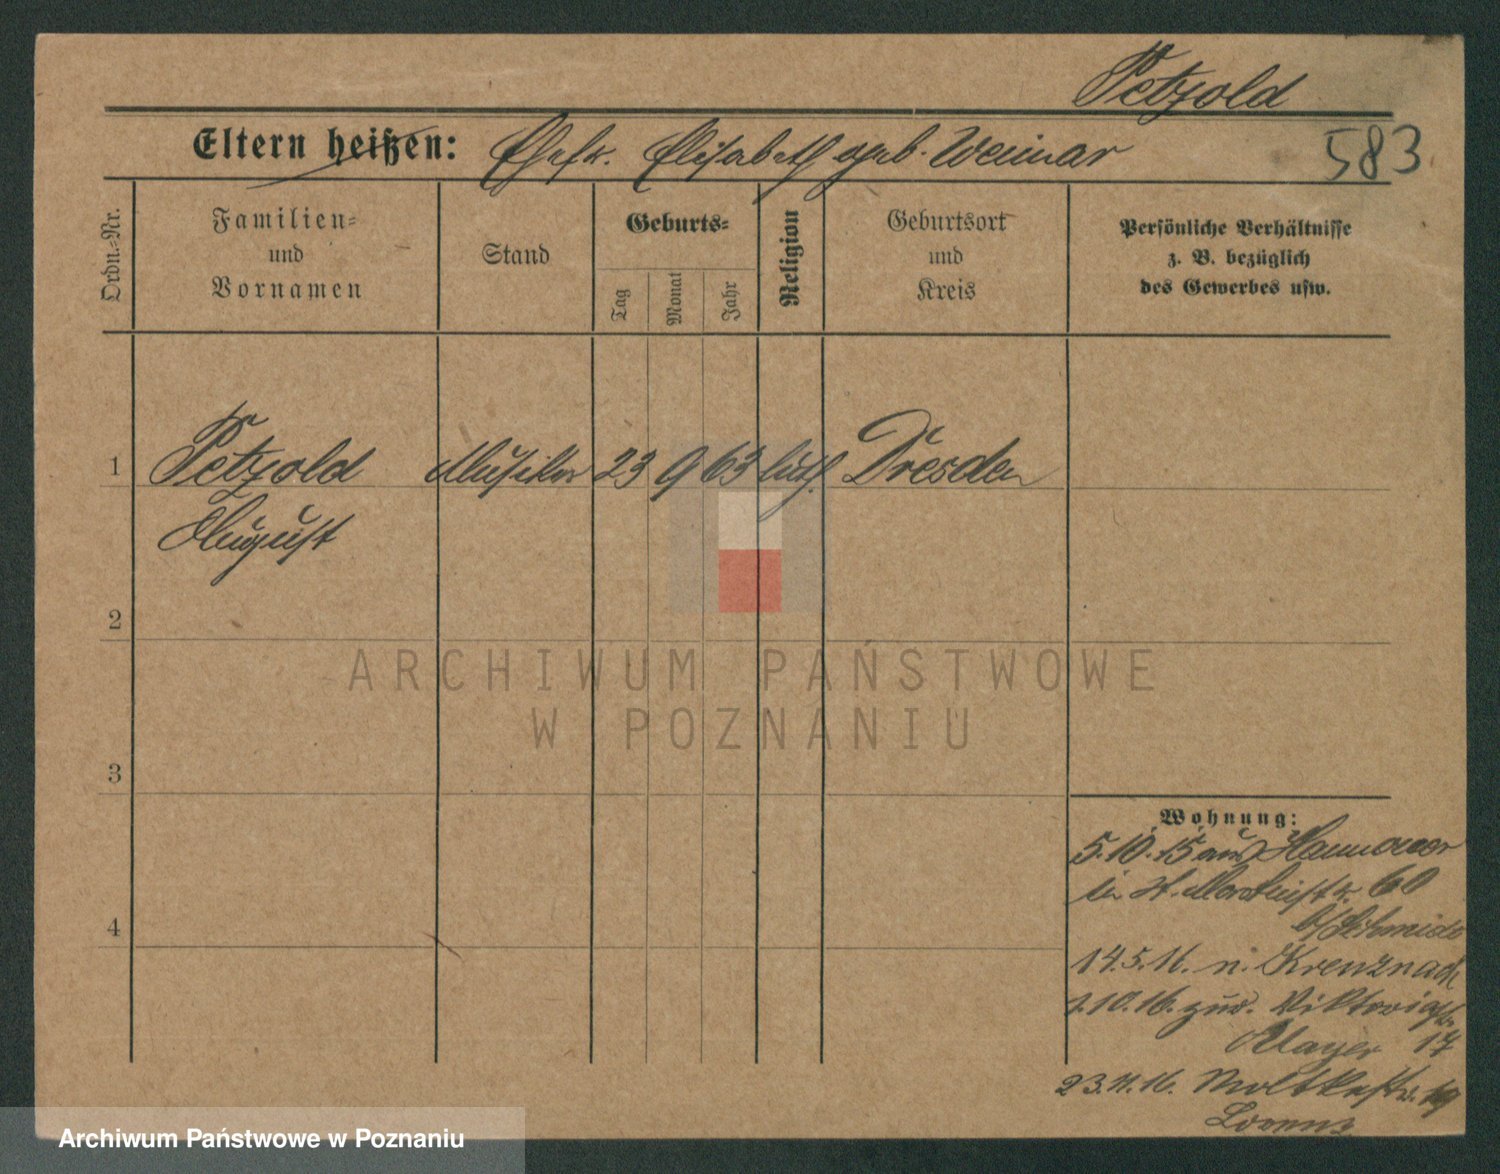 Petzold
Eltern heißen: Ehefr. Elisabeth geb. Weimar
583
Ordn.-Nr.
Familien-
und
Vornamen
Stand
Geburts-
Tag
Monat
Jahr
Religion
Geburtsort
und
Kreis
Persönliche Verhältnisse
z. B. bezüglich
des Gewerbes usw.
1 Petzold Musiker 23 9 63 luth. Dresden
August
2
3
4
Wohnung:
5.10.15 aus Hannover
in St. Martinstr. 60
b/ Schmidt
14.5.16. n. Kreuznach
1.10.16. zur. Viktoriastr.
Mayer 17
23.11.16. Moltkestr. 19
Lorenz
ARCHIWUM PAŃSTWOWE
W POZNANIU
Archiwum Państwowe w Poznaniu